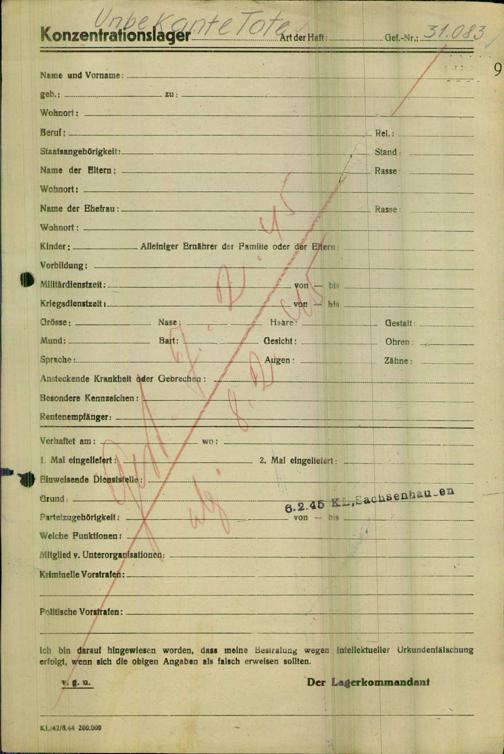 Unbekannte Tote
Konzentrationslager Art der Haft: Gef.-Nr.: 31.083
9
Name und Vorname:
geb.: zu:
Wohnort:
Beruf: Rel.:
Staatsangehörigkeit: Stand:
Name der Eltern: Rasse:
Wohnort:
Name der Ehefrau: Rasse:
Wohnort:
Kinder: Alleiniger Ernährer der Familie oder der Eltern:
Vorbildung:
Militärdienstzeit: von — bis
Kriegsdienstzeit: von — bis
Grösse: Nase: Haare: Gestalt:
Mund: Bart: Gesicht: Ohren:
Sprache: Augen: Zähne:
Ansteckende Krankheit oder Gebrechen:
Besondere Kennzeichen:
Rentenempfänger:
Verhaftet am: wo:
1. Mal eingeliefert: 2. Mal eingeliefert:
Einweisende Dienststelle:
Grund: 6.2.45 KL.Sachsenhausen
Parteizugehörigkeit: von — bis
Welche Funktionen:
Mitglied v. Unterorganisationen:
Kriminelle Vorstrafen:
Politische Vorstrafen:
Ich bin darauf hingewiesen worden, dass meine Bestrafung wegen intellektueller Urkundenfälschung
erfolgt, wenn sich die obigen Angaben als falsch erweisen sollten.
v. g. u. Der Lagerkommandant
KL/42/8.44 200.000